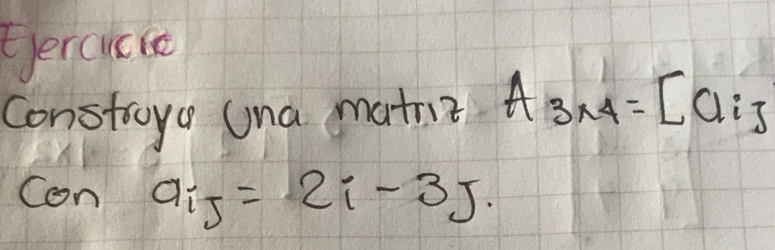 Ejercicio
Construya una matriz A 3x4 = [aij
Con aij = 2i - 3j.